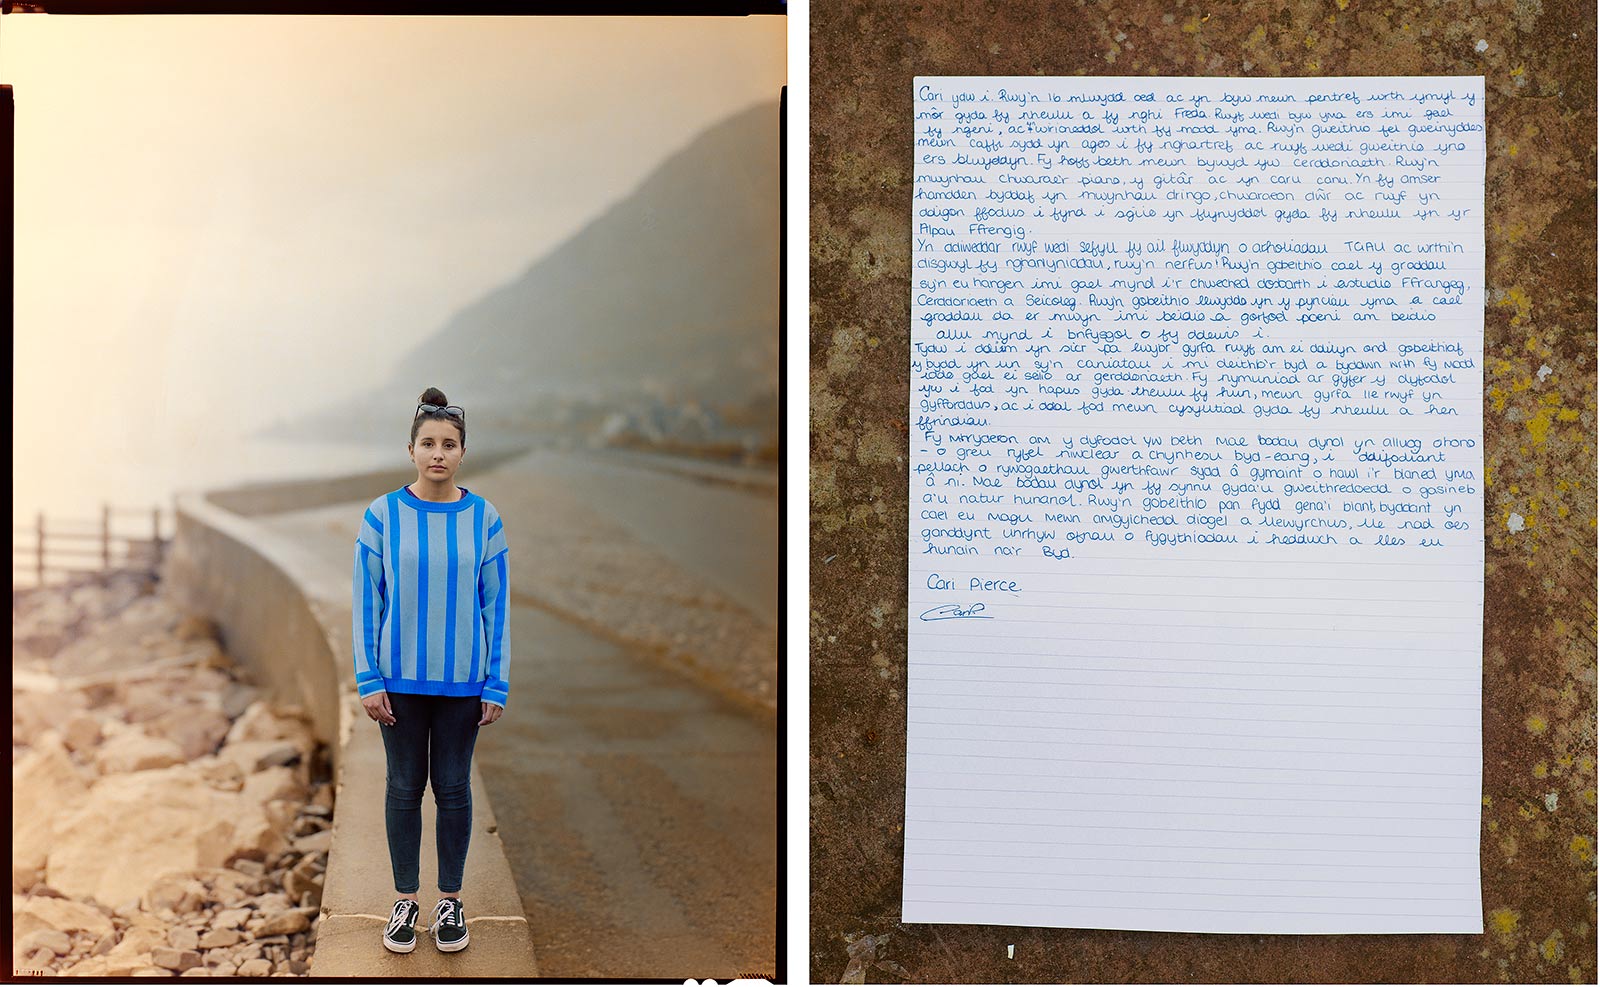 Cari ydw i. Rwy'n 16 mlwydd oed ac yn byw mewn pentref wrth ymyl y
môr gyda fy nheulu a fy nghi Freda. Rwyf wedi byw yma ers imi gael
fy ngeni, ac wirioneddol wrth fy modd yma. Rwy'n gweithio fel gweinyddes
mewn caffi sydd yn agos i fy nghartref ac rwyf wedi gweithio yno
ers blwyddyn. Fy hoff beth mewn bywyd yw cerddoriaeth. Rwy'n
mwynhau chwarae'r piano, y gitâr ac yn caru canu. Yn fy amser
hamdden byddaf yn mwynhau dringo, chwaraeon dŵr ac rwyf yn
ddigon ffodus i fynd i sgïo yn flynyddol gyda fy nheulu yn yr
Alpau Ffrengig.
Yn ddiweddar rwyf wedi sefyll fy ail flwyddyn o arholiadau TGAU ac wrthi'n
disgwyl fy nghanlyniadau, rwy'n nerfus! Rwy'n gobeithio cael y graddau
sy'n eu hangen imi gael mynd i'r chweched dosbarth i astudio Ffrangeg,
Cerddoriaeth a Seicoleg. Rwy'n gobeithio llwyddo yn y pynciau yma a cael
graddau da er mwyn imi beidio a gorfod poeni am beidio
allu mynd i brifysgol o fy ddewis i.
Tydw i ddim yn sicr pa lwybr gyrfa rwyf am ei ddilyn ond gobeithiaf
y bydd yn un sy'n caniatau i mi deithio'r byd a byddwn wrth fy modd
iddo gael ei seilio ar gerddoriaeth. Fy nymuniad ar gyfer y dyfodol
yw i fod yn hapus gyda theulu fy hun, mewn gyrfa lle rwyf yn
gyfforddus, ac i ddal fod mewn cysylltiad gyda fy nheulu a hen
ffrindiau.
Fy mhryderon am y dyfodol yw beth mae bodau dynol yn alluog ohono
- o greu ryfel niwclear a chynhesu byd-eang, i ddifodiant
pellach o rywogaethau gwerthfawr sydd â gymaint o hawl i'r blaned yma
â ni. Mae bodau dynol yn fy synnu gyda'u gweithredoedd o gasineb
a'u natur hunanol. Rwy'n gobeithio pan fydd gena'i blant, byddant yn
cael eu magu mewn amgylchedd diogel a llewyrchus, lle nad oes
ganddynt unrhyw ofnau o fygythiadau i heddwch a lles eu
hunain na'r Byd.
Cari Pierce.